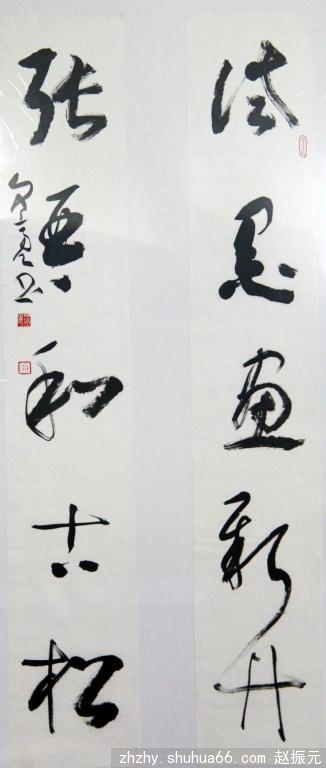 泼墨画新竹
张琴和古松
书
zhzhy.shuhua66.com 赵振元